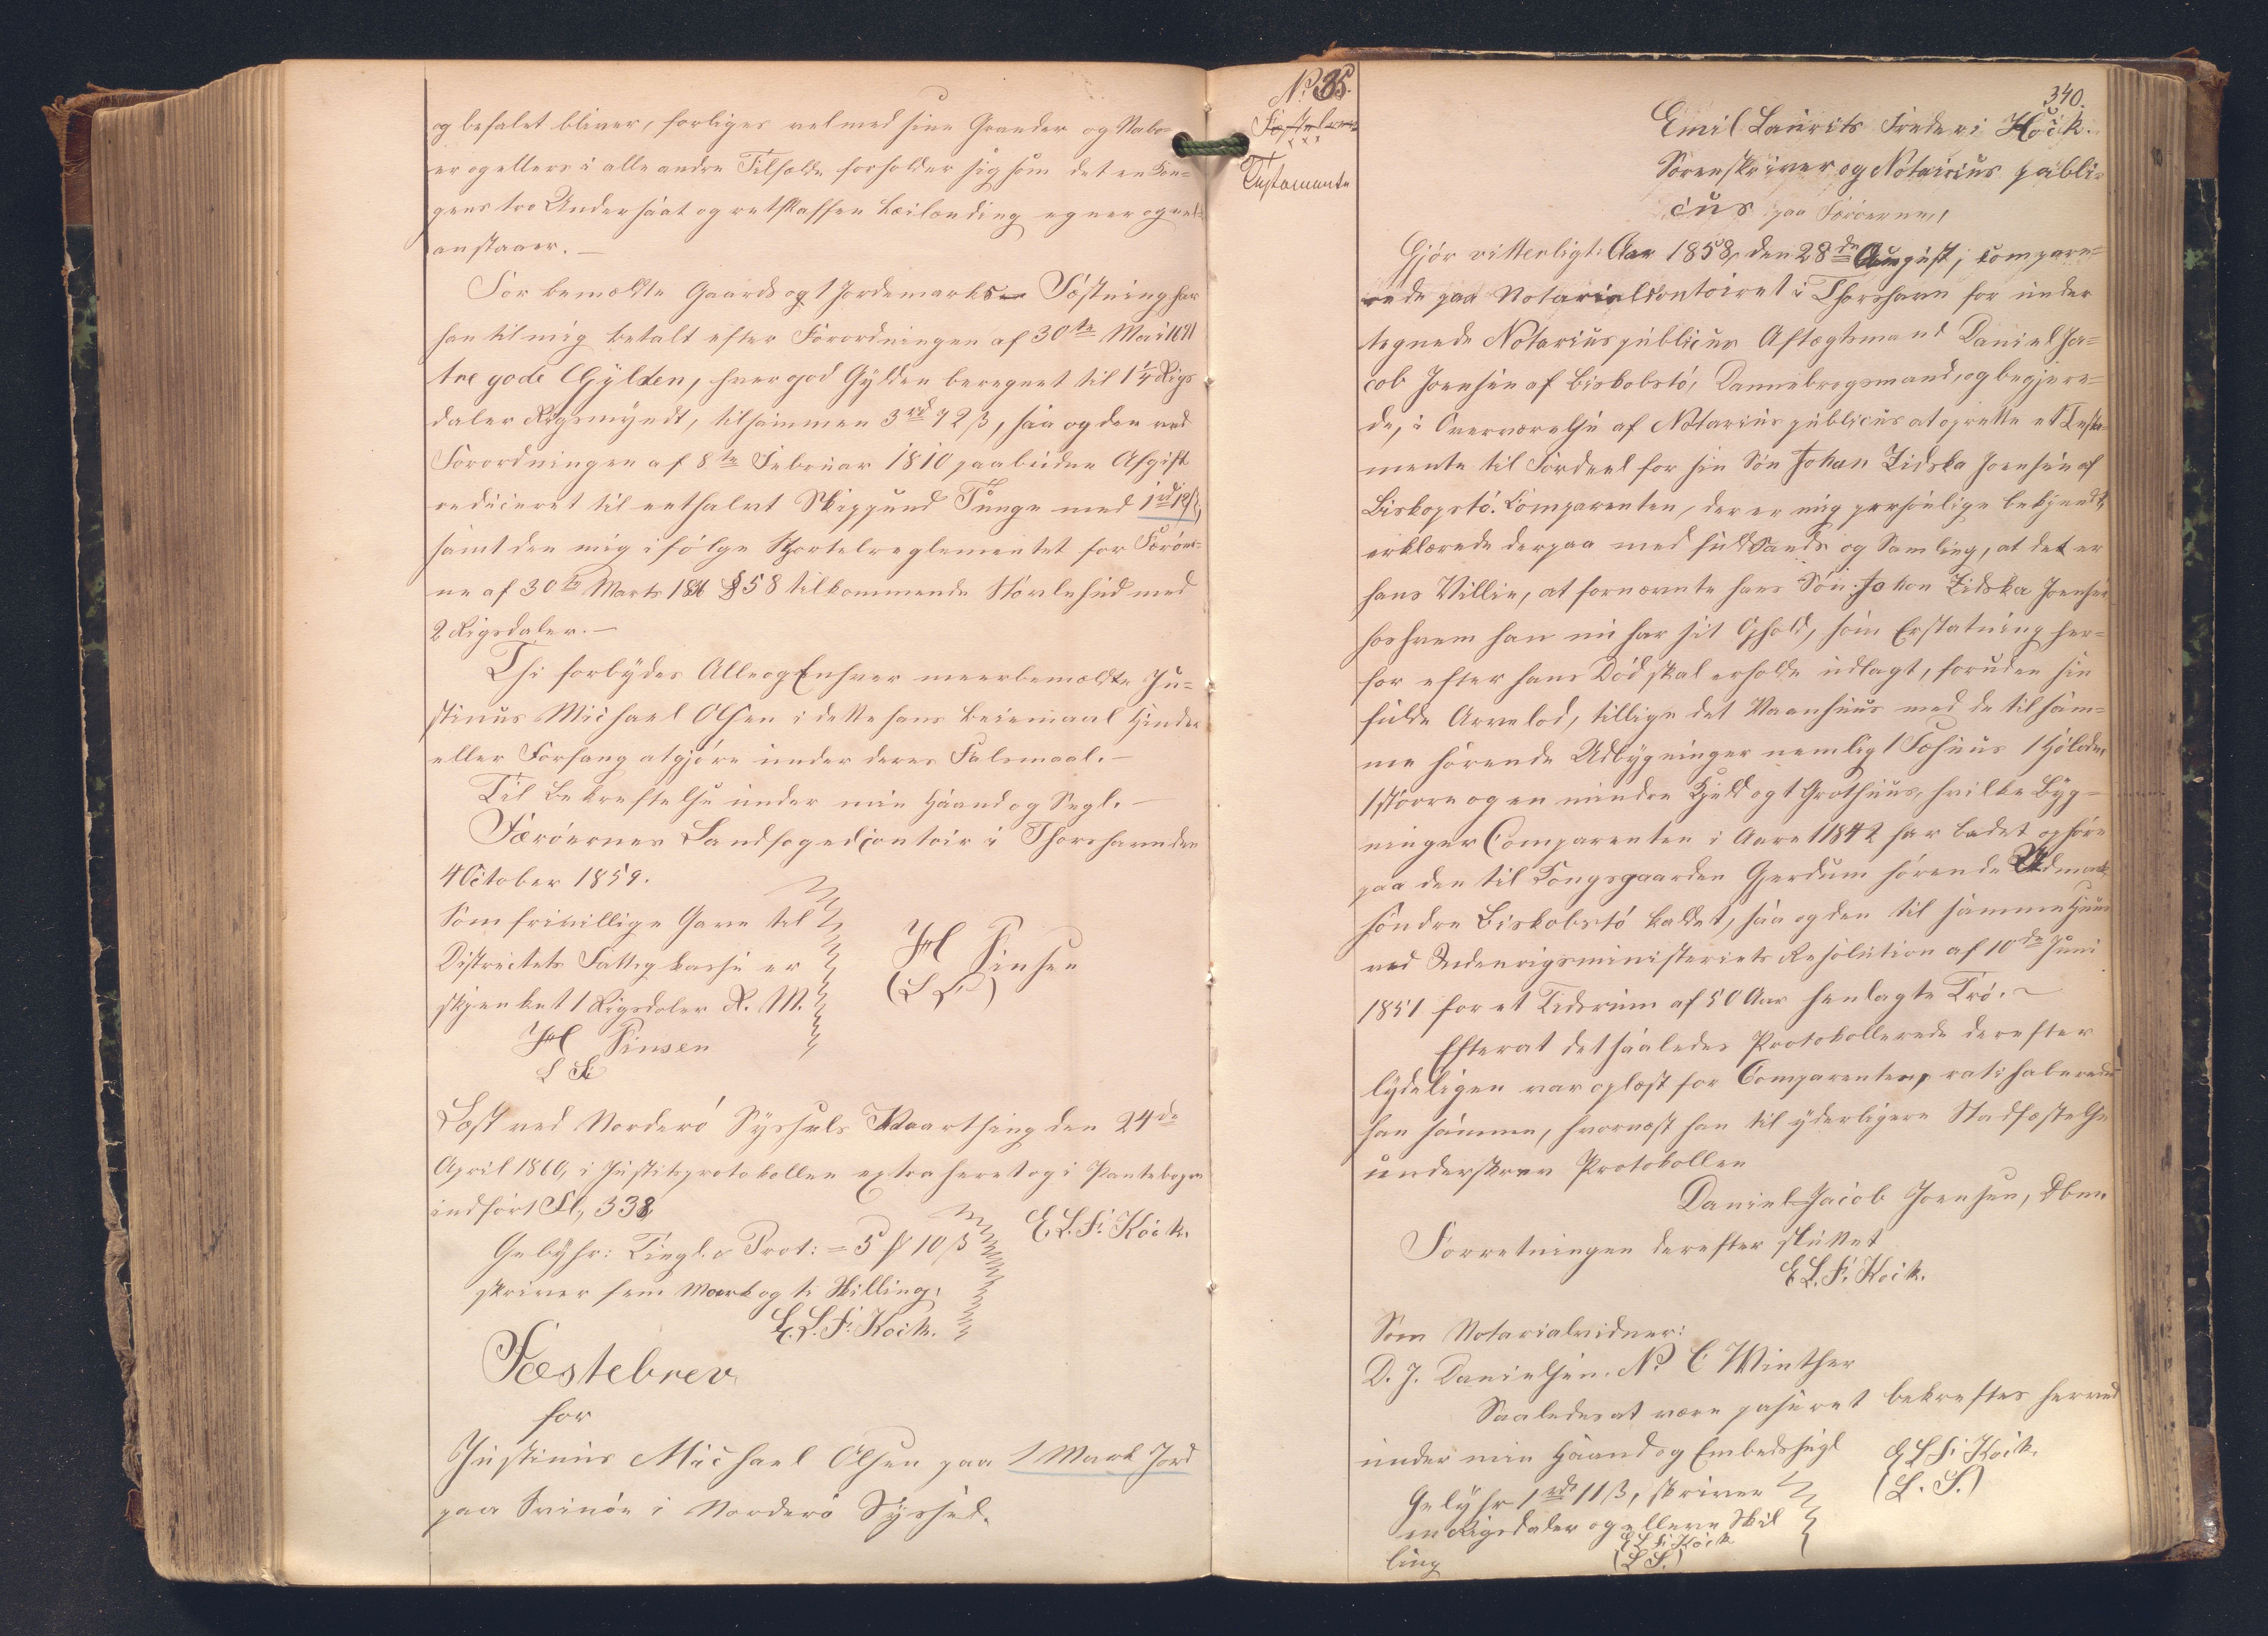 og befalet bliver, forliges vel med sine Grander og Nabo-
er og ellers i alle andre Tilfælde forholder sig som det en Kon-
gens tro Undersaat og retskaffen Leilending egner og vel
anstaaer. —
For bemældte Gaards og 1 Jordemarks Fæstning har
han til mig betalt efter Forordningen af 30te Mai
tre gode Gylden, hver god Gylden beregnet til 1 1/4 Rigs
daler Rigsmyndt, tilsammen 3 rd 72 β, saa og den ved
Forordningen af 8te Februar 1810 paabudne Afgift
reduceret til et halvt Skippund Tunge med 1 rd
samt den mig ifølge Sportelreglementet for Færøer-
ne af 30te Marts § 58 tilkommende Støvlehud med
2 Rigsdaler. —
Thi forbydes Alle og Enhver meerbemældte Ju-
stinus Michael Olsen i dette hans Leiemaal Hinder
eller Forfang at gjøre under deres Falsmaal. —
Til Bekræftelse under min Haand og Segl. —
Færøernes Landfogedcontoir i Thorshavn den
4 October 1859.
Som frivillige Gave til
Districtets Fattigkasse er
skjenket 1 Rigsdaler R. M.
H Finsen
(L S)
H Finsen
L S
Læst ved Norderø Syssels Vaarthing den 24de
April 1860, i Justitsprotokollen extraheret og i Pantebogen
indført Fol. 338
E. L. F. Kock.
Gebyhr: Tingl. & Prot: = 5 ƒ 10 β
skriver fem Mark og ti Skilling.
E. L. F. Kock.
Fæstebrev
for
Justinus Michael Olsen paa 1 Mark Jord
paa Svinøe i Norderø Syssel.
No 35.
Testamente
340.
Emil Laurits Frederi Kock.
Sorenskriver og Notairius publi-
cus paa Færøerne,
Gjør vitterligt: Aar 1858, den 28de August, compare-
rede paa Notarialcontoiret i Thorshavn for under
tegnede Notarius publicus Aftægtsmand Daniel Ja-
cob Joensen af Biskobstø, Dannebrogsmand, og begjere-
de, i Overværelse af Notarius publicus at oprette et Testa-
mente til Fordeel for sin Søn Johan Zidska Joensen af
Biskopstø. Comparenten, der er mig personlige bekjendt,
erklærede derpaa med fuld Sands og Samling, at det er
hans Villie, at fornævnte hans Søn: Johan Zidska Joensen
hos hvem han nu har sit Ophold, som Erstatning her-
for efter hans Død skal erholde udlagt, foruden sin
fulde Arvelod, tillige det Vaanhuus med de tilsam-
me hørende Udbygninger nemlig 1 Fæhuus 1 Hjølder
1 større og en mindre Hjeld og 1 Grothuus, hvilke Byg-
ninger Comparenten i Aaret 1842 har ladet opføre
paa den til Kongsgaarden Gjerdum hørende Udmark
Søndre Biskobstø kaldet, saa og den til samme Huus
ved Indenrigsministeriets Resolution af 10de Juni
1851 for et Tidsrum af 50 Aar henlagte Trø. ~
Efterat det saaledes Protokollerede derefter
lydeligen var oplæst for Comparenten, ratihaberede
han samme, hvornæst han til yderligere Stadfæstelse
underskrev Protokollen
Daniel Jacob Joensen, Dbm.
Forretningen derefter sluttet
E L. F. Kock.
Som Notarialvidner:
D. J. Danielsen. N. C Winther
Saaledes at være passeret bekræftes herved
under min Haand og Embedssegl
E L F. Kock.
(L. S.)
Gebyhr 1 rdl 11 β, skriver
en Rigsdaler og elleve Skil
ling
E L F. Kock
(L S.)